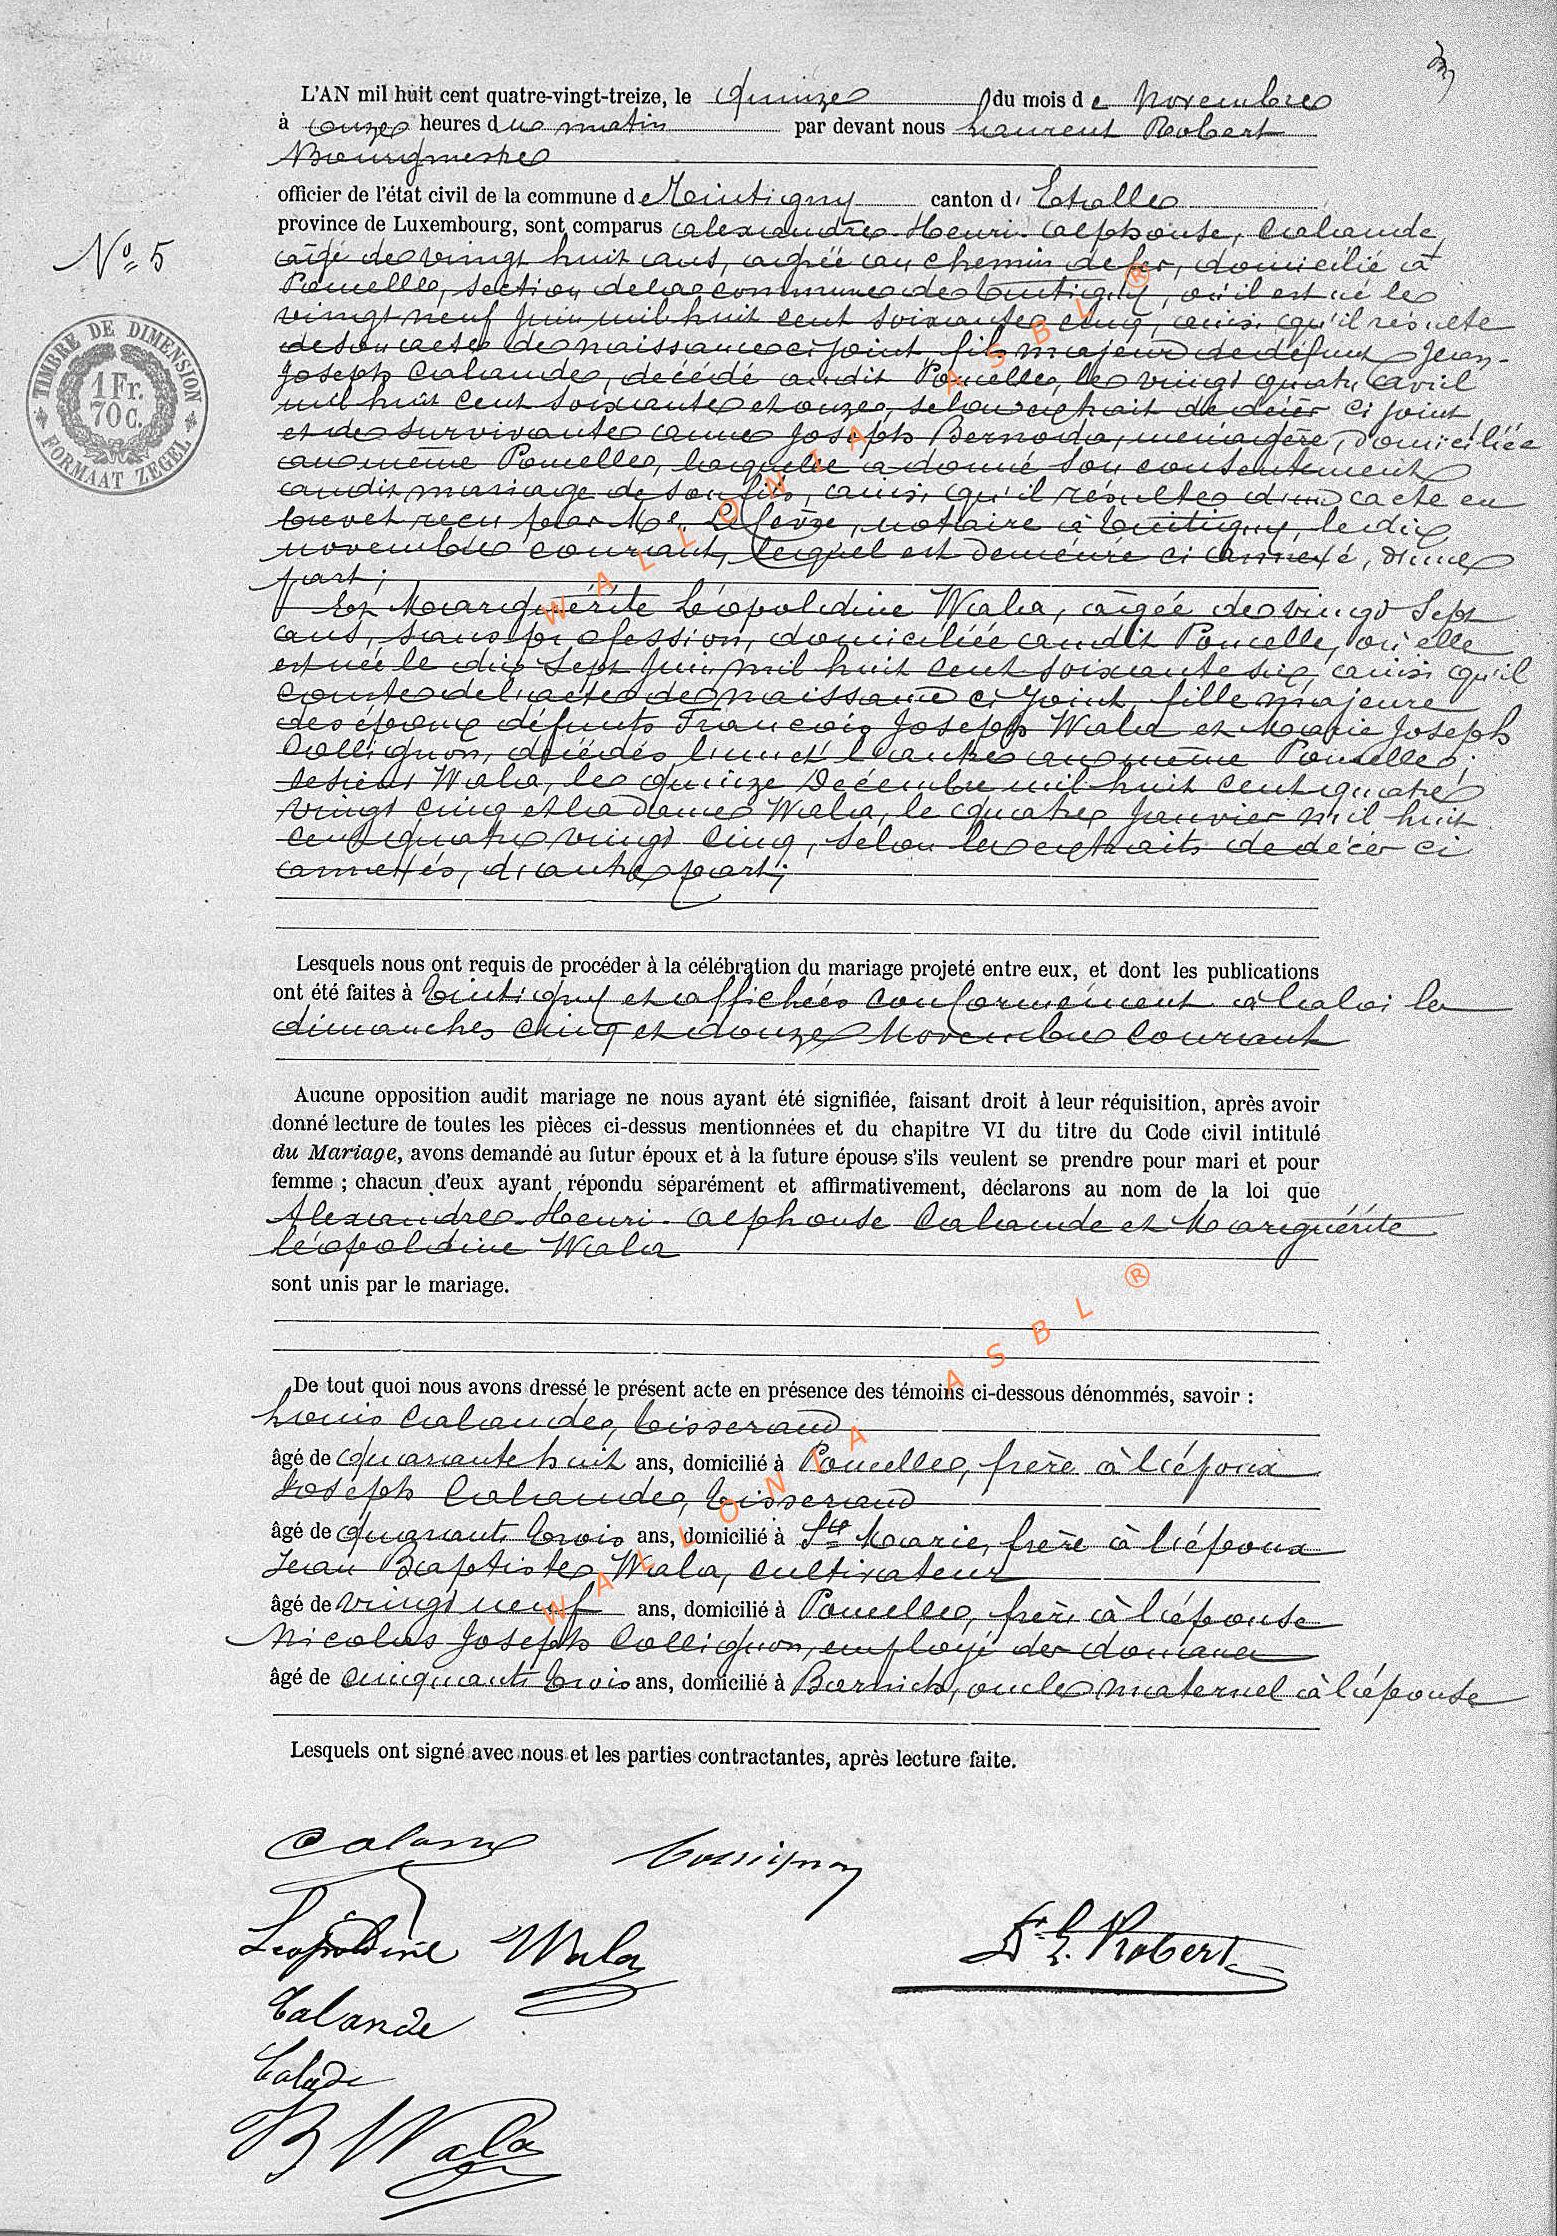 L'AN mil huit cent quatre-vingt-treize, le quinze du mois de Novembre
à onze heures du matin par devant nous Laurent Robert
Bourgmestre
officier de l'état civil de la commune de Tintigny canton d'Etalle
province de Luxembourg, sont comparus Alexandre-Henri-Alphonse, Calande,
N° 5
âgé de vingt huit ans, agréé au chemin de fer, domicilié à
Poncelle, section de la commune de Tintigny, où il est né le
vingt neuf juin mil huit cent soixante cinq, ainsi qu'il résulte
de son acte de naissance ci joint, fils majeur de défunt Jean-
Joseph Calande, décédé audit Poncelle, le vingt quatre avril
mil huit cent soixante et onze, selon extrait de décès ci joint,
et de survivante Anne Joseph Bernoda, ménagère, domiciliée
au même Poncelle, laquelle a donné son consentement
audit mariage de son fils, ainsi qu'il résulte d'un acte en
brevet reçu par Me Lefèvre, notaire à Tintigny, le dix
novembre courant, lequel est demeuré ci annexé, d'une
part;
Et Marguérite Léopoldine Wala, âgée de vingt sept
ans, sans profession, domiciliée audit Poncelle, où elle
est née le dix sept juin mil huit cent soixante six, ainsi qu'il
conste de l'acte de naissance ci joint, fille majeure
des époux défunts François Joseph Wala et Marie Joseph
Collignon, décédés l'un et l'autre au même Poncelle;
le sieur Wala, le quinze Décembre mil huit cent quatre
vingt cinq et la dame Wala, le quatre Janvier mil huit
cent quatre vingt cinq, selon les extraits de décès ci
annexés, d'autre part;
TIMBRE DE DIMENSION
1 Fr.
70 C.
FORMAAT ZEGEL
Lesquels nous ont requis de procéder à la célébration du mariage projeté entre eux, et dont les publications
ont été faites à Tintigny et affichées conformément à la loi les
dimanches cinq et douze Novembre courant
Aucune opposition audit mariage ne nous ayant été signifiée, faisant droit à leur réquisition, après avoir
donné lecture de toutes les pièces ci-dessus mentionnées et du chapitre VI du titre du Code civil intitulé
du Mariage, avons demandé au futur époux et à la future épouse s'ils veulent se prendre pour mari et pour
femme ; chacun d'eux ayant répondu séparément et affirmativement, déclarons au nom de la loi que
Alexandre-Henri-Alphonse Calande et Marguérite
Léopoldine Wala
sont unis par le mariage.
De tout quoi nous avons dressé le présent acte en présence des témoins ci-dessous dénommés, savoir :
Louis Calande, tisserand
âgé de quarante huit ans, domicilié à Poncelle, frère à l'époux
Joseph Calande, tisserand
âgé de quarante trois ans, domicilié à Ste Marie, frère à l'époux
Jean Baptiste Wala, cultivateur
âgé de vingt neuf ans, domicilié à Poncelle, frère à l'épouse
Nicolas Joseph Collignon, employé des douanes
âgé de cinquante trois ans, domicilié à Barnich, oncle maternel à l'épouse
Lesquels ont signé avec nous et les parties contractantes, après lecture faite.
Calande Collignon
Léopoldine Wala Dr L. Robert
Calande
Calade
B Wala
WALLONIA ASBL ®
WALLONIA ASBL ®